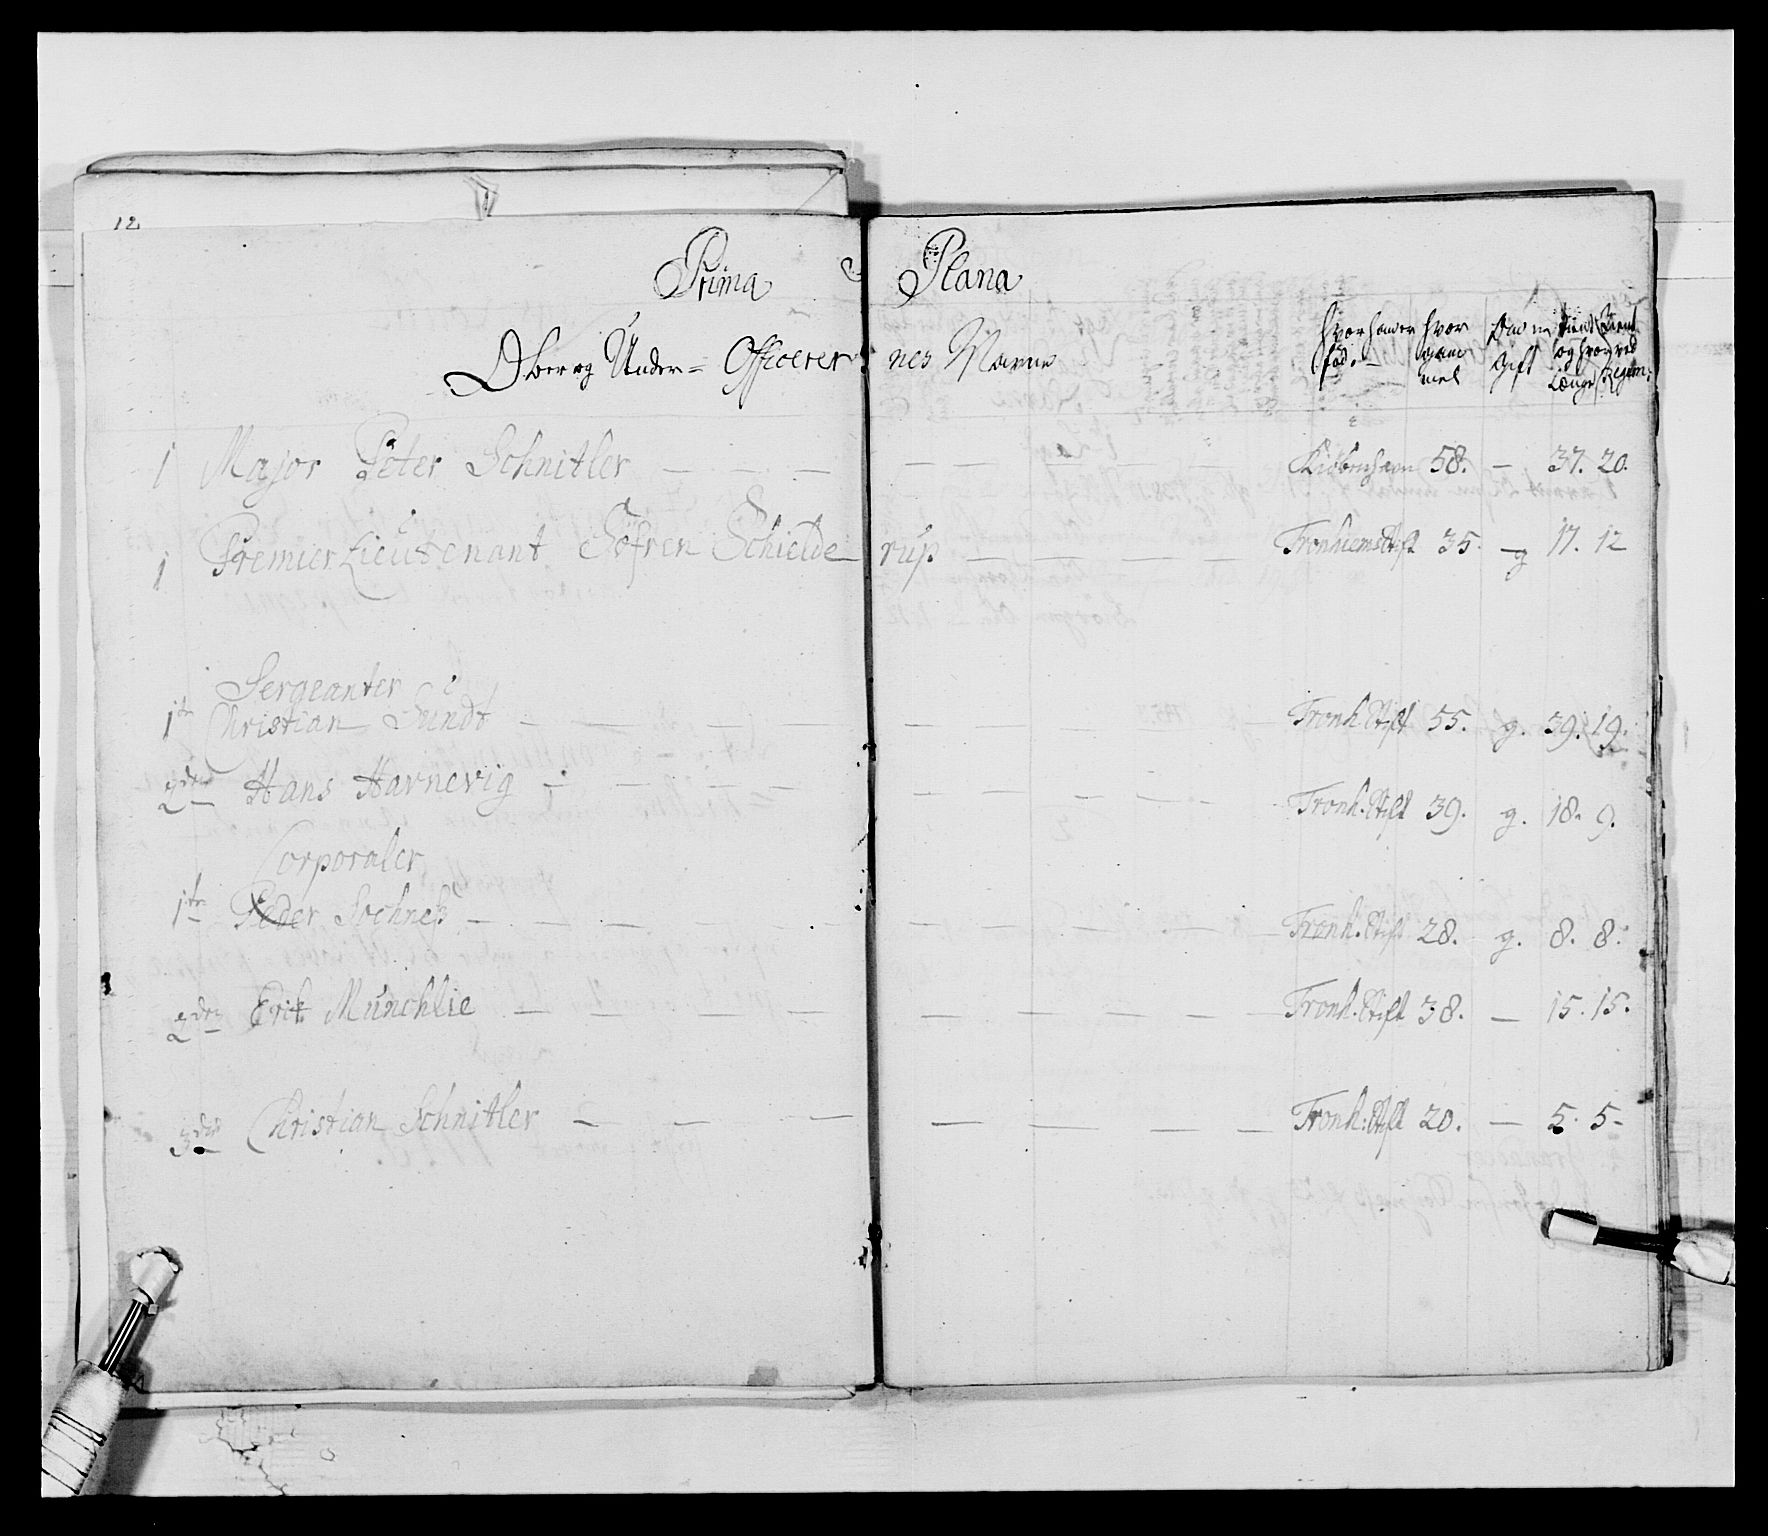 12
Prima Plana
Ober og Under = Officerer nes Navne
hvor han er fød hvor gam mel om Gift tient og hvor Længe tient ved Regim:
1 Major Peter Schnitler — — — — — — — Kiøbenhavn 58. — 37. 20.
1 Premier Lieutenant Söfren Schielde rup — — — — Tronhiems Stift 35. g 17. 12
Sergeanter
1te Christian Sundt — — — — — — — Tronh. Stift 55. g. 39. 19.
2den Hans Havnevig — — — — — — — Tronh. Stift 39. g. 18. 9.
Corporaler
1te Peder Sochneß — — — — — — — Tronh. Stift 28. g. 8. 8.
2den Erik Münchlie — — — — — — — Tronh. Stift 38. — 15. 15.
3die Christian Schnitler — — — — — — — Tronh: Stift 20. — 5. 5-